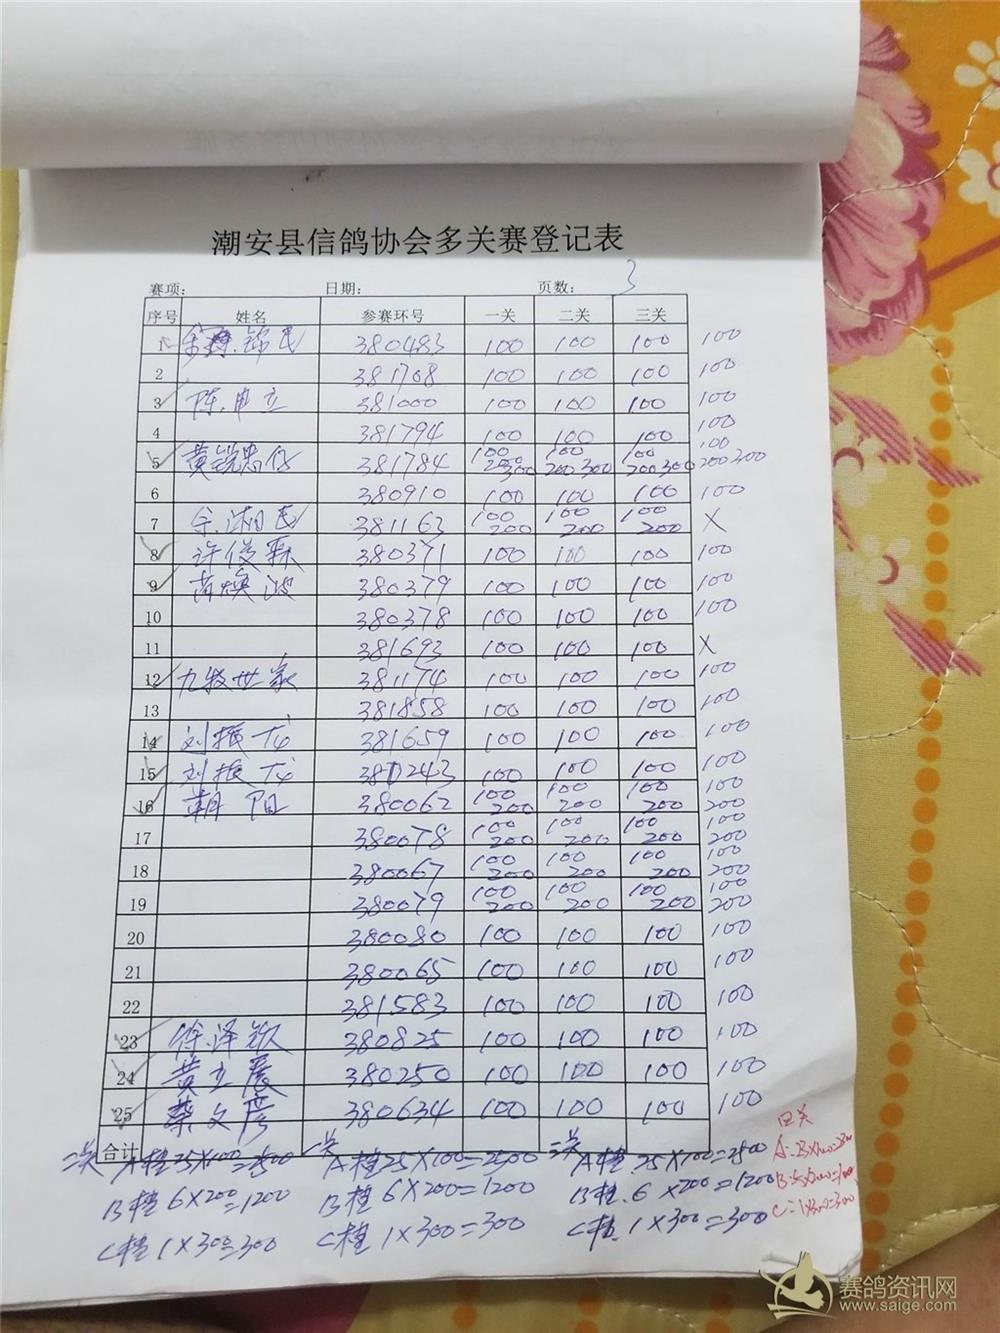 潮安县信鸽协会多关赛登记表
赛项: 日期: 页数: 3
序号 姓名 参赛环号 一关 二关 三关
1 锦民 380483 100 100 100 100
2 381708 100 100 100 100
3 陈申立 381000 100 100 100 100
4 381794 100 100 100 100
5 黄锐忠仔 381784 100 200 300 100 200 300 100 200 300 100 200 300
6 380910 100 100 100 100
7 余湘民 381163 100 200 100 200 100 200 X
8 许俊霖 380371 100 100 100 100
9 黄焕波 380379 100 100 100 100
10 380378 100 100 100 100
11 381693 100 100 100 X
12 九牧世家 381174 100 100 100 100
13 381858 100 100 100 100
14 刘振龙 381659 100 100 100 100
15 刘振龙 380243 100 100 100 100
16 朝阳 380062 100 200 100 200 100 200 100 200
17 380078 100 200 100 200 100 200 100 200
18 380067 100 200 100 200 100 200 100 200
19 380079 100 200 100 200 100 200 100 200
20 380080 100 100 100 100
21 380065 100 100 100 100
22 381583 100 100 100 100
23 徐泽钦 380825 100 100 100 100
24 黄立展 380250 100 100 100 100
25 蔡文彦 380634 100 100 100 100
合计
A档25X100=2500 A档25X100=2500 三关 A档25X100=2500
B档6X200=1200 B档6X200=1200 B档.6X200=1200
C档1X300=300 C档1X300=300 C档.1X300=300
四关
A:23X100=2300
B:5X200=1000
C:1X300=300
赛鸽资讯网
www.saige.com